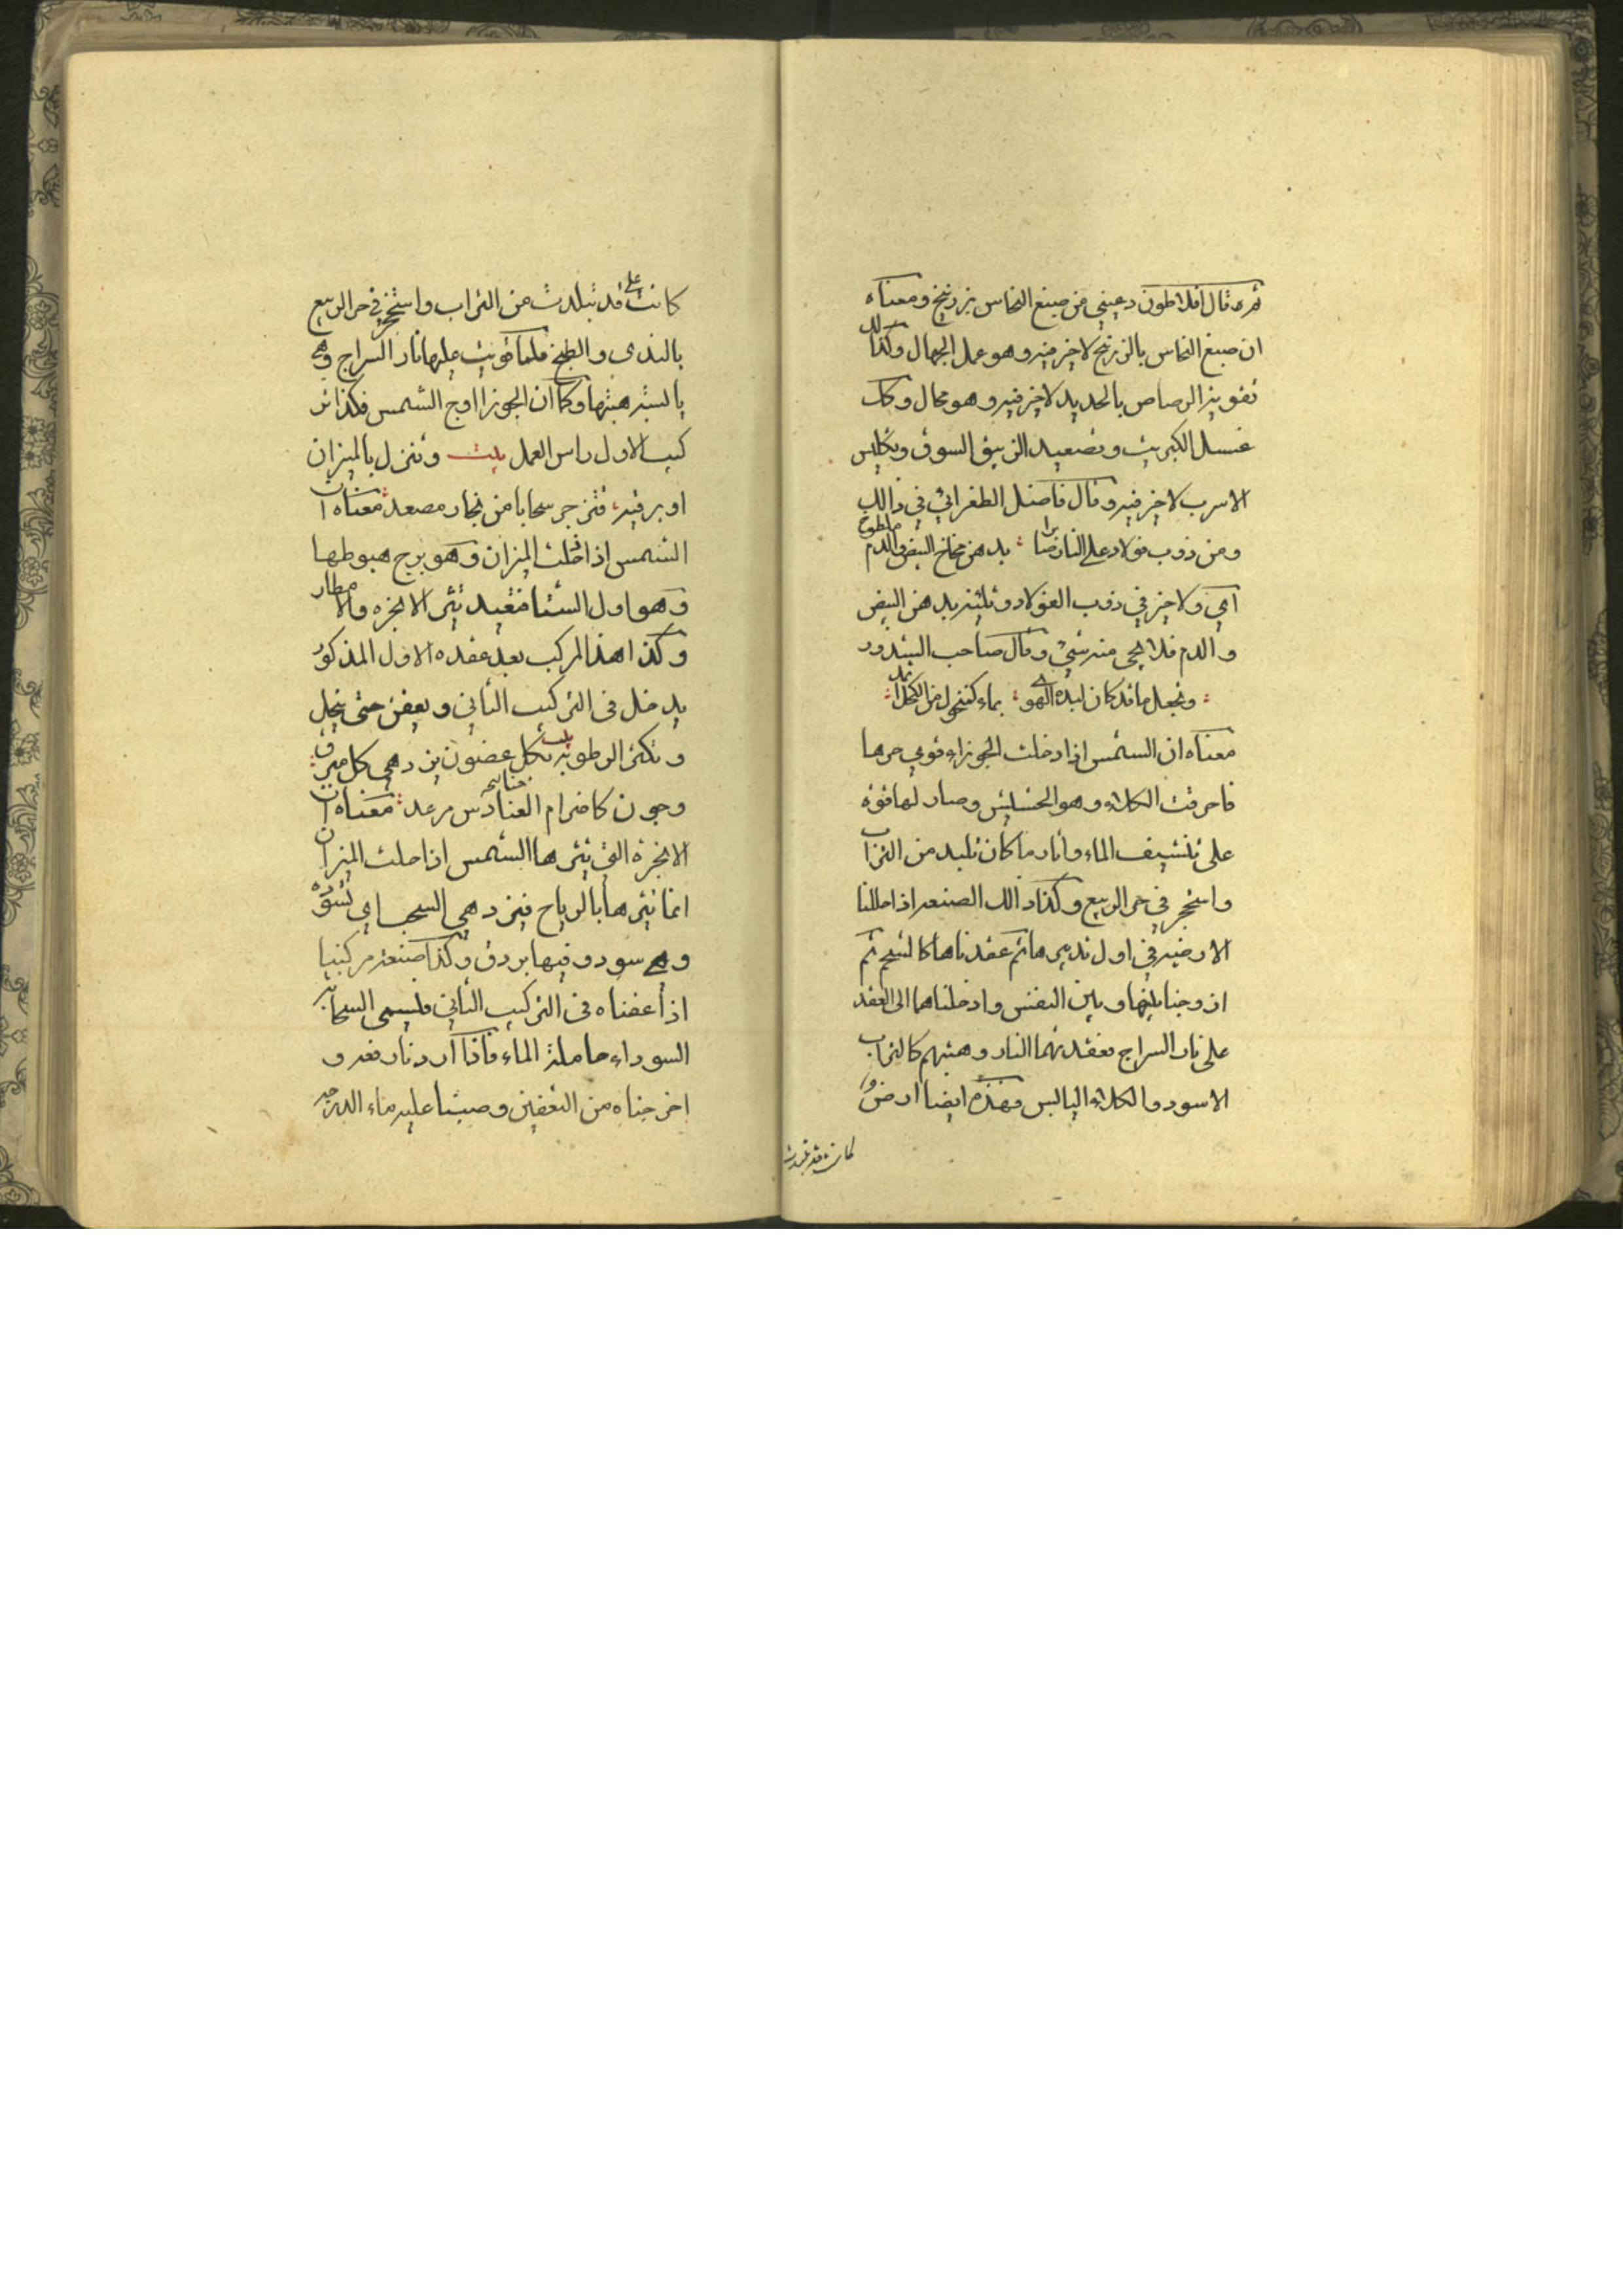 ثمره قال افلاطون دعيني من صبغ النحاس بزرنيخ ومعناه
ان صبغ النحاس بالزرنيخ لا خير فيه وهو عمل الجهال وكذلك
تقوية الرصاص بالحديد لا خير فيه وهو محال وكذلك
غسل الكبريت وتصعيد الزيبق السوق وتكليس
الاسرب لا خير فيه وقال فاضل الطغرائي في ذالك
ومن ذوب فولاد على النار بدهن مخاخ البيض والدم
اي ولا خير في ذوب الفولاد وتليينه بدهن البيض
والدم فلا يجي منه شيئ وقال صاحب الشذور
ونجعل ما قد كان لبده الهو بماء
معناه ان الشمس اذا دخلت الجوزاء قوي حرها
فاحرقت الكلاء وهو الحشيش وصار لها قوة
على تنشيف الماء واثار ما كان تلبد من التراب
واستحجر في حر الربيع وكذا ذالك الصنعه اذا حللنا
الارضيه في اول تدبيرها ثم عقدناها كالشحم ثم
ازوجنا بينها وبين النفس وادخلناهما الى العقد
على نار السراج فعقدتهما النار وهبتهم كالتراب
الاسود والكلاء اليابس فهذه ايضا ارض
كانت قد تبلدت
كانت قد تبلدت من التراب واستحجر في حر الربيع
بالندى والطبخ فلما قويت عليها نار السراج وهي
يابسة هبتها وكما ان الجوزا اوج الشمس فكذا تر
كيب الاول راس العمل بيت وتنزل بالميزان
او برقيه فتزجر سحابا من بخار مصعد معناه ان
الشمس اذا حلت الميزان وهو برج هبوطها
وهو اول الشتا فعند تثير الابخره والامطار
وكذا هذا المركب بعد عقده الاول المذكور
يدخل في التركيب الثاني ويعفن حتى ينحل
وتكثر الرطوبة بيت بكل هضون يزدهي كل مبرق
وجون كاضرام الحنادس مرعد معناه ان
الابخرة التي تثيرها الشمس اذا حلت الميزان
انما تثيرها بالرياح فيزدهي السحاب اي تسوقه
وهي سود وفيها بروق وكذا صنعة مركبنا
اذا عفناه في التركيب الثاني فليسمى السحابة
السوداء حاملة الماء فاذا اردنا رعده
اخرجناه من التعفين وصبنا عليه ماء الدرجه